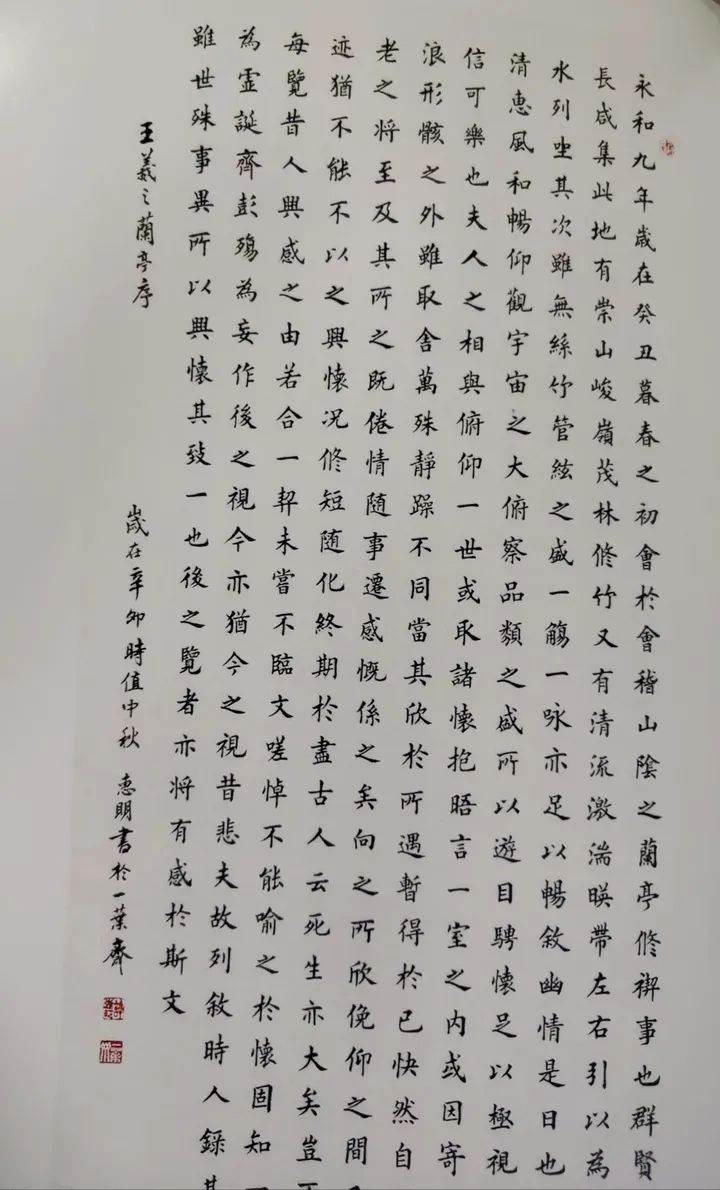 永和九年歲在癸丑暮春之初會於會稽山陰之蘭亭修禊事也群賢
長咸集此地有崇山峻嶺茂林修竹又有清流激湍暎帶左右引以為
水列坐其次雖無絲竹管絃之盛一觴一咏亦足以暢敘幽情是日也
清惠風和暢仰觀宇宙之大俯察品類之盛所以遊目騁懷足以極視
信可樂也夫人之相與俯仰一世或取諸懷抱晤言一室之内或因寄
浪形骸之外雖取舍萬殊靜躁不同當其欣於所遇暫得於己快然自
老之将至及其所之既倦情随事遷感慨係之矣向之所欣俛仰之間
迹猶不能不以之興懷況修短随化終期於盡古人云死生亦大矣豈
每覽昔人興感之由若合一契未嘗不臨文嗟悼不能喻之於懷固知
為霊誕齊彭殤為妄作後之視今亦猶今之視昔悲夫故列敘時人錄
雖世殊事異所以興懷其致一也後之覽者亦将有感於斯文
王羲之蘭亭序
歲在辛卯時值中秋 惠明書於一葉齋